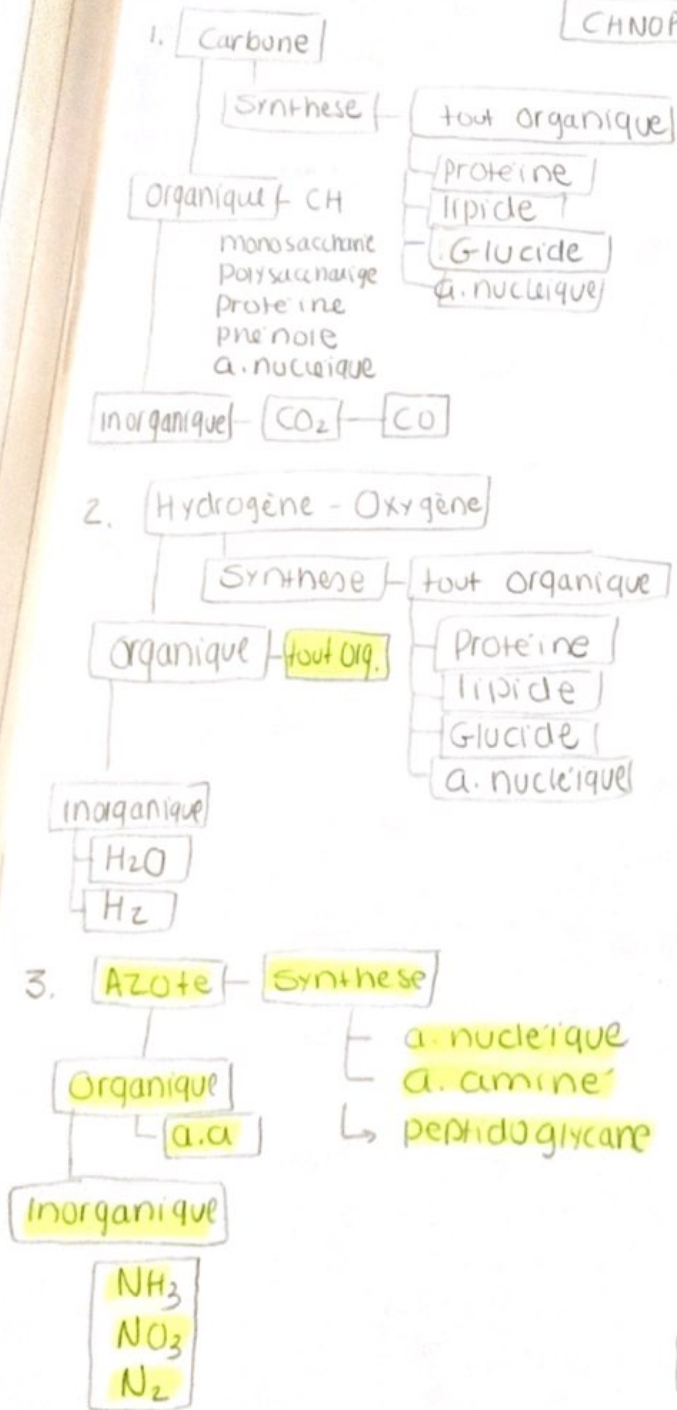 CHNOP
1. Carbone
Synthese
tout organique
Proteine
lipide
Glucide
a. nucleique
Organique CH
monosaccharie
Polysaccharige
proteine
phenole
a. nucleique
inorganique CO₂ CO
2. Hydrogène - Oxygène
Synthese tout organique
Organique tout org.
Proteine
lipide
Glucide
a. nucléique
inorganique
H2O
H2
3. Azote Synthese
a. nucléique
a. aminé
↳ peptidoglycane
Organique
a.a
Inorganique
NH₃
NO₃
N₂